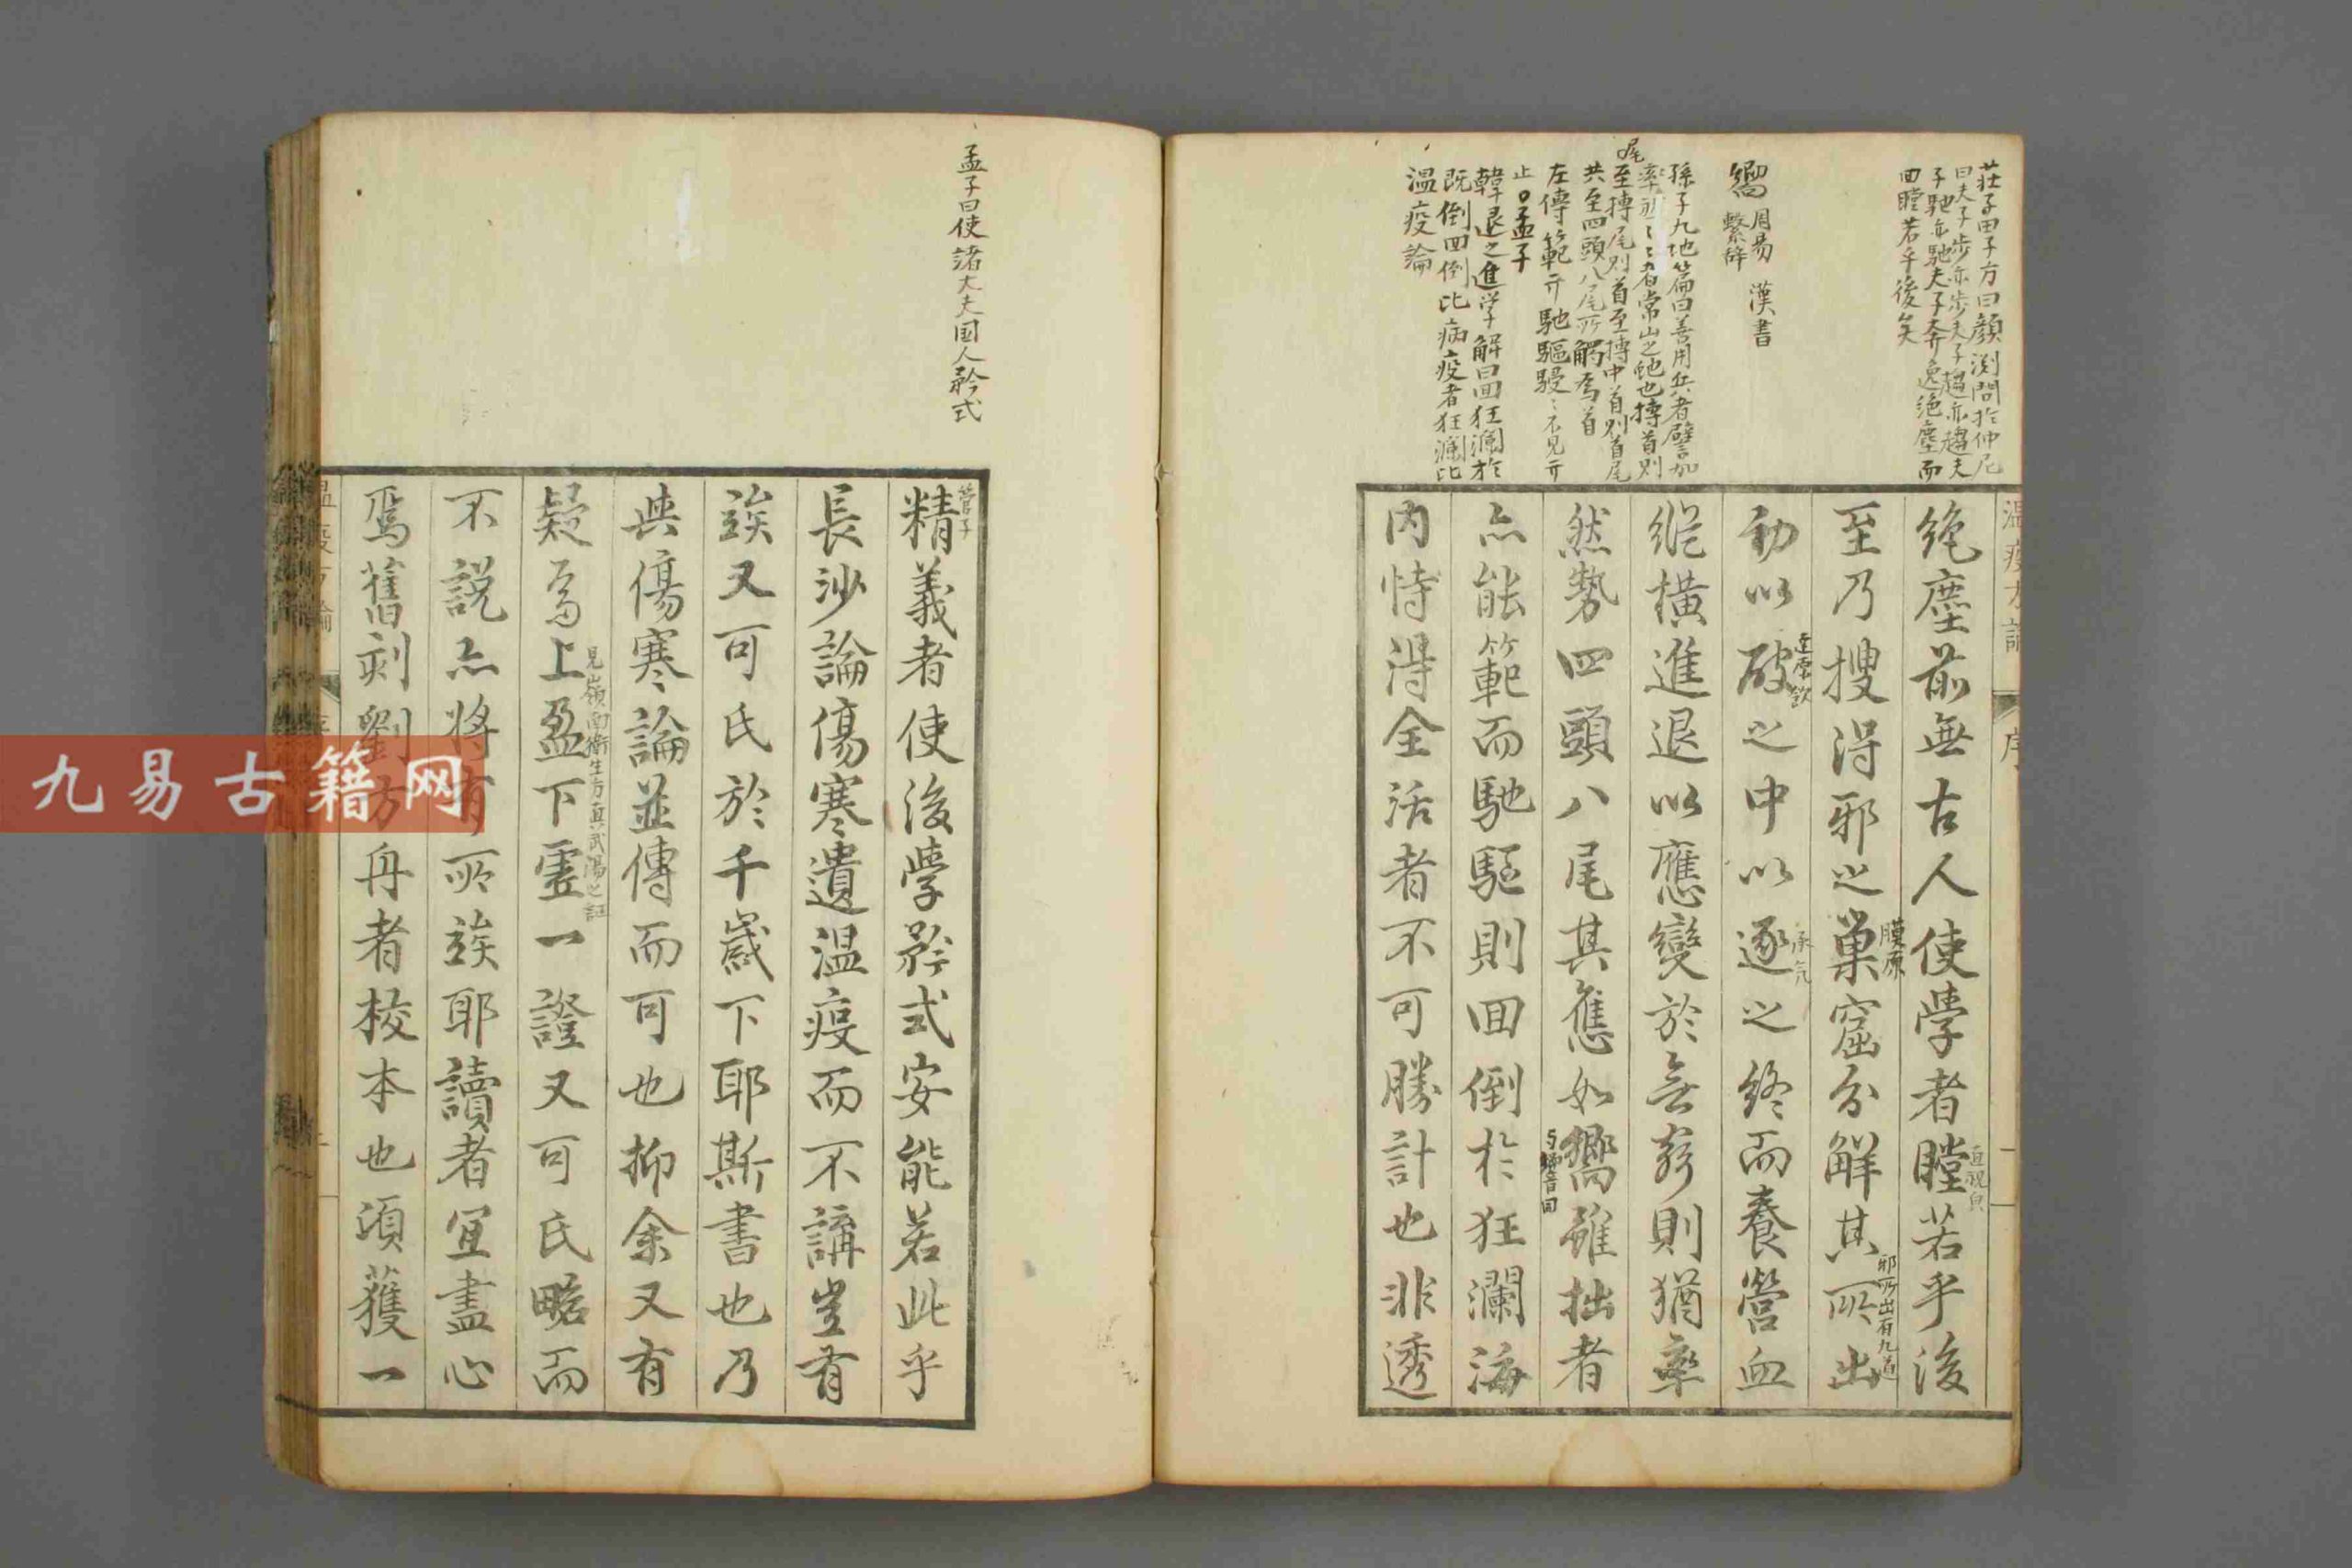 莊子田子方曰顏淵問於仲尼
曰夫子步亦步夫子趨亦趨夫
子馳亦馳夫子奔逸絶塵而
回瞠若乎後矣
嚮 周易繫辞 漢書
孫子九地篇曰善用兵者譬如
率然率然者常山之蛇也搏首則
尾至搏尾則首至搏中首則首尾
共至四頭八尾所觸為首
左傳範
止○孟子
韓退之進学解曰回狂瀾於
既倒回倒比病疫者狂瀾比
温疫論
温疫方論
序
絶塵前無古人使學者瞠若乎後
直視皃
至乃搜得邪之巢窟分解其所出
膜原
邪所出有九道
動以破之中以逐之終而養營血
達原飲
承气
縱横進退以應變於無窮則猶率
然勢四頭八尾其應如嚮雖拙者
亦能範而馳驅則回倒於狂瀾海
内恃得全活者不可勝計也非透
孟子曰使諸大夫国人矜式
精義者使後學矜式安能若此乎
管子
長沙論傷寒遺温疫而不講豈有
竢又可氏於千歳下耶斯書也乃
與傷寒論並傳而可也抑余又有
疑焉上盈下虚一證又可氏畧而
見嶺南衛生方真武湯之証
不説亦將有所竢耶讀者宜盡心
焉舊刻劉方舟者校本也頃獲一
九易古籍网